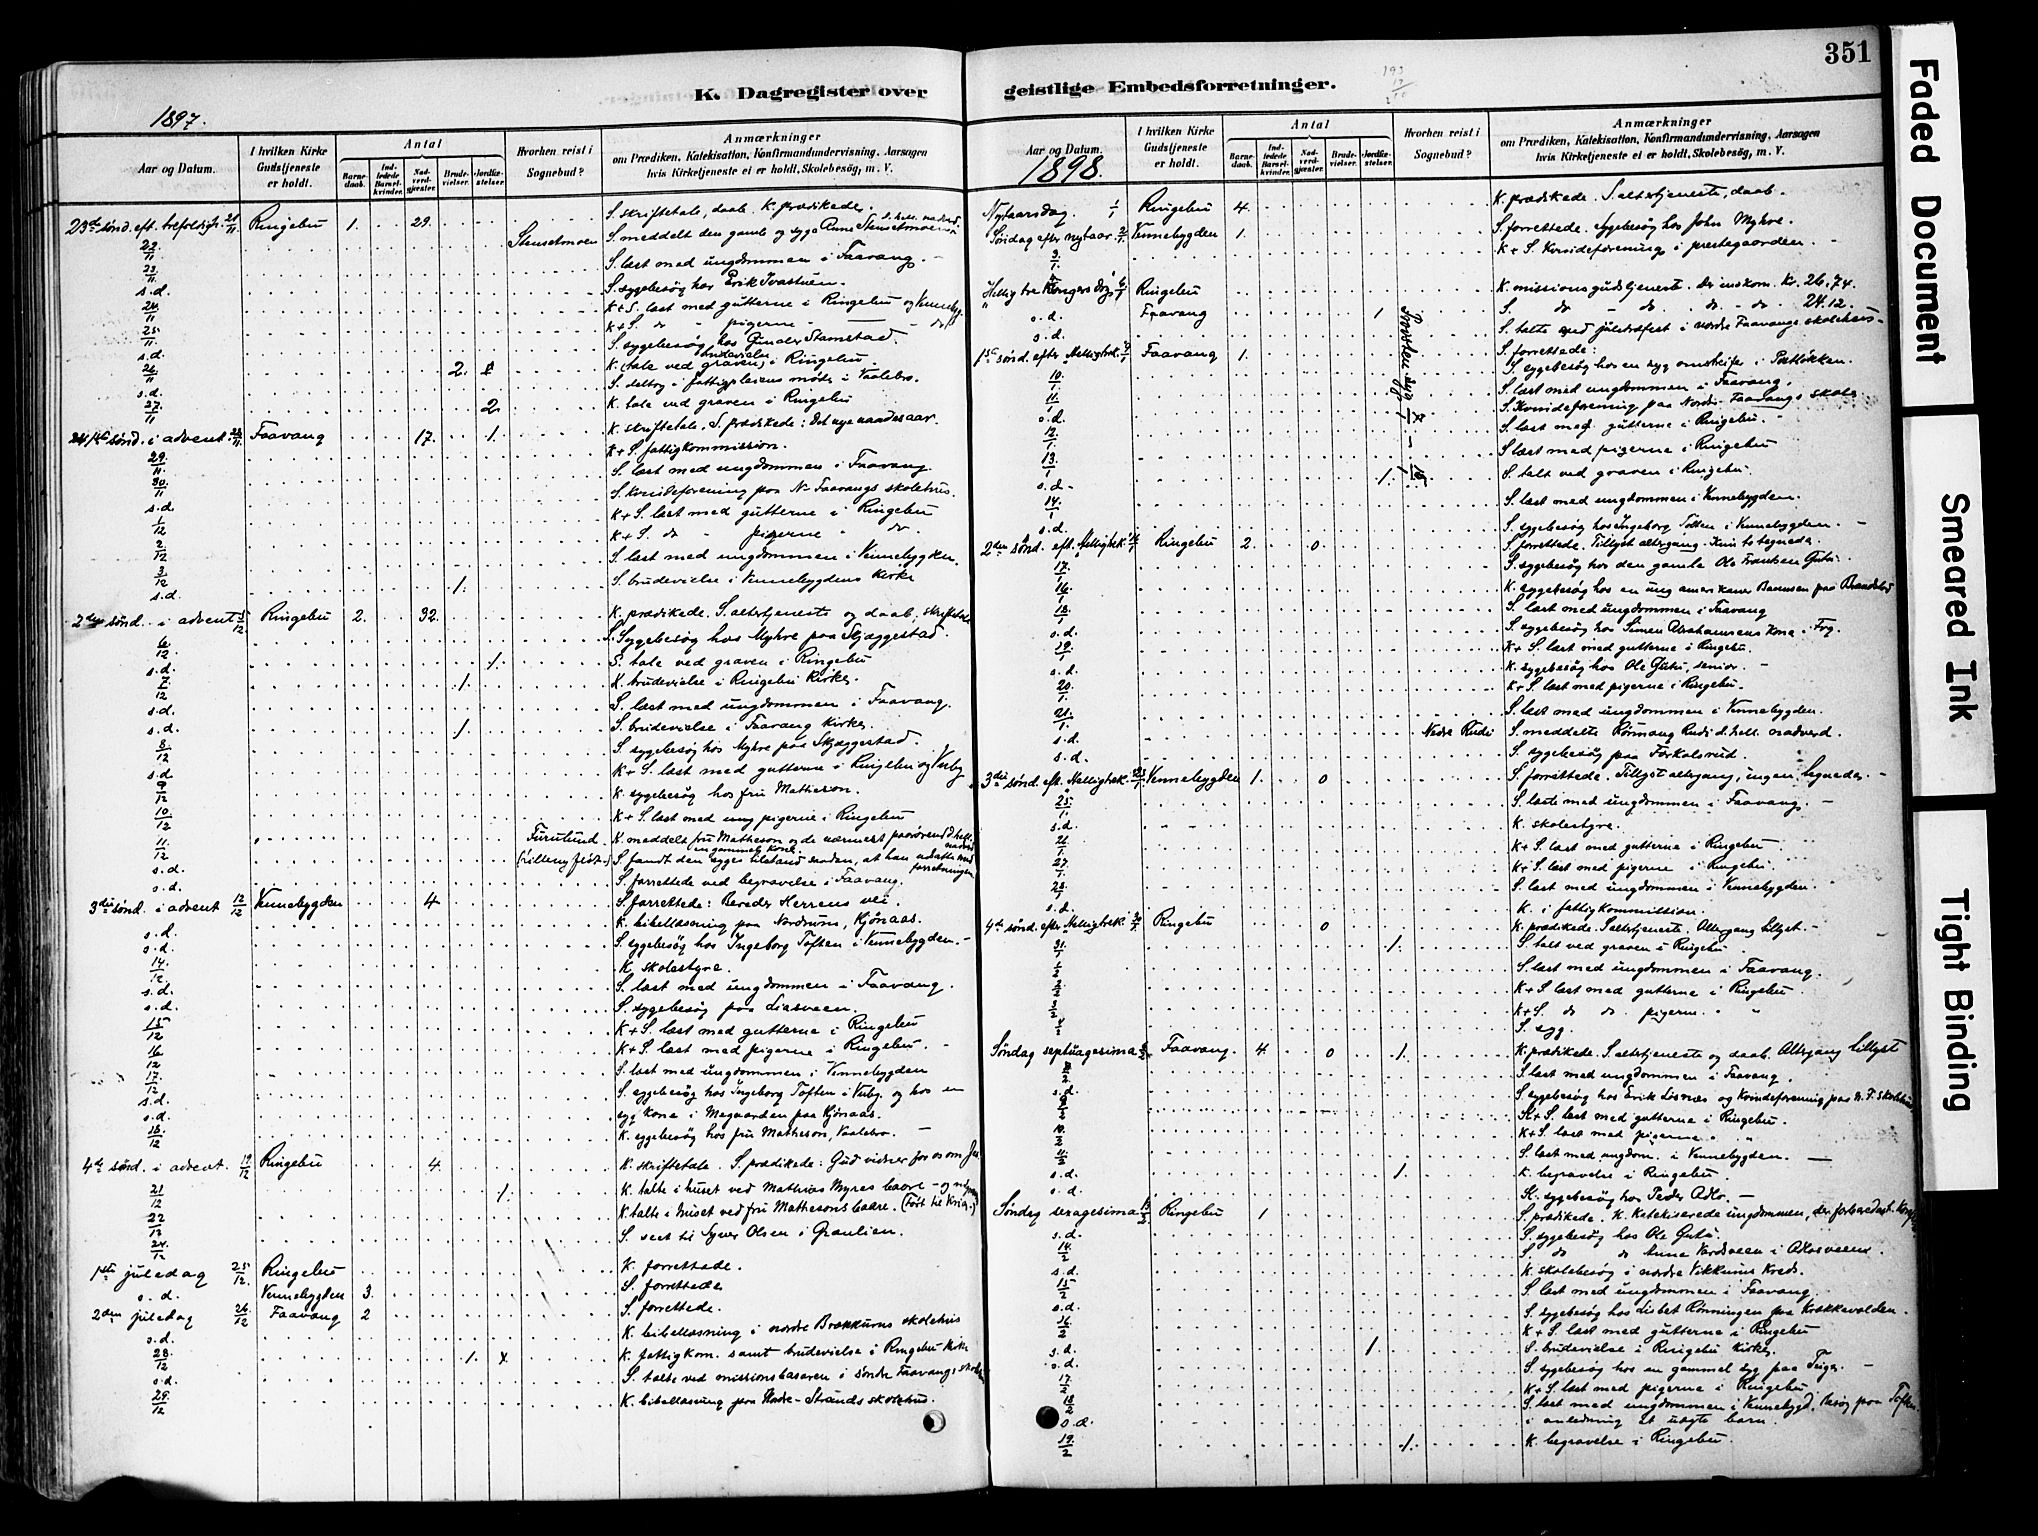 K. Dagregister over
1897.
Aar og Datum.
I hvilken Kirke Gudstjeneste er holdt.
Antal
Barne-daab.
Ind-ledede Barsel-kvinder.
Nad-verd-gjæster.
Brude-vielser.
Jordfæ-stelser.
Hvorhen reist i Sognebud?
Anmærkninger
om Prædiken, Katekisation, Konfirmandundervisning, Aarsagen
hvis Kirketjeneste ei er holdt, Skolebesøg, m. V.
23de sønd. eft. trefoldigh. 21/11 Ringebu 1. 29. S. skriftetale, daab. K. prædikede.
22/11 Stensetmoen S. meddelt den gamle og syge Anne Stensetmoen d. hell. nadverd.
23/11 S. læst med ungdommen i Faavang.
s.d. S. sygebesøg hos Erik Ivastuen.
24/11 K+S. læst med gutterne i Ringebu og Vennebyg.
25/11 K+S. do pigerne do
s.d. S. sygebesøg hos Gunder Stamstad.
26/11 2. K. tale ved graven, brudevielse i Ringebu.
s.d. S. deltog i fattigpleiens møde i Vaalebro.
27/11 2. K. tale ved graven i Ringebu
1ste sønd. i advent 28/11 Faavang 17. 1. K. skriftetale. S. prædikede: Det nye naadesaar.
29/11 K+S fattigkommission.
30/11 S. læst med ungdommen i Faavang.
s.d. S. kvindeforening paa N. Faavangs skolehus.
1/12 K+S. læst med gutterne i Ringebu
2/12 K+S. do pigerne do
3/12 S. læst med ungdommen i Vennebygden.
s.d. 1. S. brudevielse i Vennebygdens kirke
2den sønd. i advent 5/12 Ringebu 2. 32. K. prædikede. S. altertjeneste og daab, skriftetale
6/12 S. Sygebesøg hos Myhre paa Skjæggestad.
s.d. 1. S. tale ved graven i Ringebu
7/12 1. K. brudevielse i Ringebu kirke.
s.d. S. læst med ungdommen i Faavang.
s.d. 1. S. brudevielse i Faavang kirke.
8/12 S. sygebesøg hos Myhre paa Skjæggestad.
s.d K+S. læst med gutterne i Ringebu og Vnbg.
9/12 K. sygebesøg hos fru Matheson.
10/12 K+S læst med ung pigerne i Ringebu
11/12 Furulund K. meddelt fru Matheson og de nærmest paarørende d. hell. nadverd
s.d. S. fandt den syges tilstand saadan, at han udsatte med forretningen
en gammel kone
s.d. S. forrettede ved begravelse i Faavang.
3die sønd. i advent 12/12 Vennebygden 4. S. forrettede: Bereder Herrens vei.
s.d. K. bibellæsning paa Nordrum, Kjønaas.
s.d. S. sygebesøg hos Ingeborg Toften i Vennebygden.
14/12 K. skolestyre.
s.d. S. læst med ungdommen i Faavang.
s.d. S. sygebesøg paa Liasveen.
15/12 K+S. læst med gutterne i Ringebu
16/12 K+S. læst med pigerne i Ringebu.
17/12 S. læst med ungdommen i Vennebygden
s.d. S. sygebesøg hos Ingeborg Toften i Vnbg. og hos en
s.d. syg kone i Mogaarden paa Kjønaas.
18/12 K. sygebesøg hos fru Matheson, Vaalebro.
4de sønd. i advent. 19/12 Ringebu 4. K. skriftetale. S. prædikede: Gud vidner for os om
21/12 1. K. talte i huset ved Mathias Myres baare.
22/12 K. talte i huset ved fru Mathesons baare.
24/12 S. reist til Syver Olsen i Granlien.
1ste juledag 25/12. Ringebu K. forrettede.
s.d. Vennebygden 3. S. forrettede
2den juledag 26/12 Faavang 2 S. forrettede.
s.d. K. bibellæsning i nordre Brekkums skolehus
28/12 1. K. fattigkom. samt brudevielse i Ringebu kirke
s.d. S. talte ved missionsbasaren i søndre Faavangs
29/12 K. bibellæsning paa Nedre-Strands skolehus.
351
geistlige Embedsforretninger.
Aar og Datum.
1898.
I hvilken Kirke Gudstjeneste er holdt.
Antal
Barne-daab.
Ind-ledede Barsel-kvinder.
Nad-verd-gjæster.
Brude-vielser.
Jordfæ-stelser.
Hvorhen reist i Sognebud?
Anmærkninger
om Prædiken, Katekisation, Konfirmandundervisning, Aarsagen
hvis Kirketjeneste ei er holdt, Skolebesøg, m. V.
Nytaarsdag. 1/1 Ringebu 4. K. prædikede. S. altertjeneste, daab.
Søndag efter nytaar 2/1 Vennebygden 1. S. forrettede. Sygebesøg hos John Myhre.
3/1. K+S. Kvindeforening i prestegaarden.
Hellig tre Kongers dag, 6/1 Ringebu K. missionsgudstjeneste. Der inkom. Kr. 26.74.
s.d. Faavang S. do do do 24.12.
s.d. S. talte ved juletræfest i nordre Faavangs skolehus
Provsten syg
1ste sønd. efter Helligtrek. 9/1 Faavang 1. S. forrettede:
10/1. S. sygebesøg hos en syg omstreifer i Postløkken.
11/1. S. læst med ungdommen i Faavang.
s.d. S. Kvindeforening paa Nordre-Faavangs skole
12/1. S. læst med gutterne i Ringebu.
13/1 S. læst med pigerne i Ringebu
s.d. 1. S. talt ved graven i Ringebu.
14/1 S. læst med ungdommen i Vennebygden.
s.d. S. sygebesøg hos Ingeborg Toften i Vennebygden.
2den sønd. eft. Helligtrek. 16/1 Ringebu 2. 0. S. forrettede. Tillyst altergang. Kun to tegnede.
17/1 S. sygebesøg hos den gamle Ole Frantsen Gutu.
K. sygebesøg hos en ung amerikaner
18/1 S. læst med ungdommen i Faavang
s.d. S. sygebesøg hos Simen Abrahamsens kone
19/1 K+S. læst med gutterne i Ringebu.
s.d. K. sygebesøg hos Ole Gutu, senior.
20/1. K+S. læst med pigerne i Ringebu.
21/1. S. læst med ungdommen i Vennebygden.
s.d. Nedre Rudi S. meddelte Rønnaug Rudi d. hell. nadverd.
s.d. S. sygebesøg paa Forkalsrud.
3die sønd. eft. Helligtrek. 23/1 Vennebygden 1. 0 S. forrettede. Tillyst altergang, ingen tegnede.
25/1. S. læste med ungdommen i Faavang.
s.d. K. skolestyre.
26/1. K+S. læst med gutterne i Ringebu
27/1. K+S. læst med pigerne i Ringebu
28/1 S. læst med ungdommen i Vennebygden.
s.d. K. i fattigkommission.
4de sønd. efter Helligtrek. 30/1 Ringebu 0 K. prædikede. S. altertjeneste. Altergang tillyst.
31/1 1. S. talt ved graven i Ringebu
1/2 S. læst med ungdommen i Faavang.
2/2 K+S. læst med gutterne i Ringebu
3/2 K+S. do do pigerne
4/2 S. syg.
Søndag septuagesima 6/2 Faavang. 4. 0 1. K. prædikede. S. altertjeneste og daab. Altergang tillyst
8/2 S. læst med ungdommen i Faavang.
s.d. S. sygebesøg hos Erik Losnæs og Kvindeforening paa N. F. skolehus
9/2 K+S. læst med gutterne i Ringebu.
10/2 K+S. læst med pigerne
11/2 S. læst med ungdom. i Vennebygden.
s.d. 1. K. begravelse i Ringebu.
s.d. K. sygebesøg hos Peder Adlo.
Søndag sexagesima 13/2 Ringebu 1 S. prædikede. K. katekiserede ungdommen,
s.d. S. sygebesøg hos Ole Gutu.
14/2 S. do do Anna
s.d. K. skolebesøg i nordre Vekkums Kreds.
15/2 S. læst med ungdommen i Faavang.
s.d. S. sygebesøg hos Lisbet Rønningen paa Krækkevolden.
16/2 K+S. læst med gutterne i Ringebu
s.d. 1 S. brudevielse i Ringebu Kirke.
s.d. S. sygebesøg hos en gammel syg paa
17/2 K+S. læst med pigerne i Ringebu
18/2 S. læst med ungdommen i Vennebygd. Besøg paa Toften
s.d. i anledning et uægte barn.
19/2 1. K. begravelse i Ringebu.
Faded Document
Smeared Ink
Tight Binding